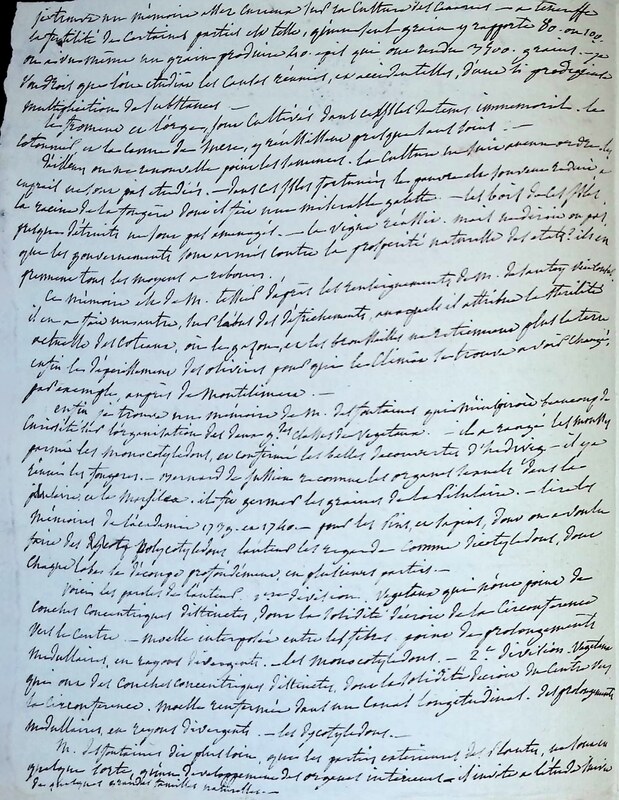 je trouve un mémoire assez curieux sur la Culture des Canaries. — a teneriffe
la fertilité de certaines parties est telle, qu'un seul grain y rapporte 80. ou 100.
on a vu même un grain produire épis qui ont rendu grains. — je
voudrois que l'on étudie les causes reunies, et accidentelles, d'une si prodigieuse
multiplication de subsistances —
le froment et l'orge, sont cultivés dans ces isles de tems immemorial. le
cotonnier, et la canne de sucre, y réussissent presque sans soins. —
d'ailleurs on ne renouvelle point les semences. la Culture en
engrais ne sont pas étudiés. — dans ces isles fortunées le pauvre est souvent reduit à
la racine de la fougere dont il fait une miserable galette. — les bois de ces isles
presque detruits ne sont pas amenagés. — la vigne réussit. mais ne diroit on pas
que les gouvernements sont armés contre la prosperité naturelle des états? ils en
prennent tous les moyens a rebours.
Ce mémoire est de M. d'après les renseignements de M.
il en a fait un autre, sur l'abus des defrichements, auxquels il attribue la sterilité
actuelle des coteaux, où le gazon, et les broussailles ne retiennent plus la terre
enfin le dépérissement des oliviers prouve que le Climat se trouve avoir changé,
par exemple, auprès de Montelimart. —
enfin je trouve un mémoire de M. desfontaines qui m'inspiroit beaucoup de
Curiosité sur l'organisation des deux gdes classes de vegetaux. — il a rangé les mousses
parmi les monocotyledons, et confirmé les belles decouvertes d'hedwig — il y a
reuni les fougeres. — bernard de Jussieu reconnut les organes sexuels dans la
pilulaire et le Marsilea. il fit germer les graines de la Pilulaire. — lire les
Mémoires de l'academie 1739. et 1740. — pour les Pins, et sapins, dont on a voulu
faire des Polycotyledons l'auteur les regarde comme dicotyledons, dont
Chaque lobe se découpe profondément, en plusieurs parties —
voici les paroles de l'auteur division. Vegetaux qui n'ont point de
couches concentriques distinctes, dont la solidité décroit de la Circonference
vers le Centre. — moelle interposée entre les fibres point de prolongements
medullaires, en rayons divergents. — les monocotyledons. — 2e division. Vegetaux
qui ont des couches concentriques distinctes, dont la solidité decroit du Centre vers
la circonference. moelle renfermée dans un canal longitudinal. des prolongements
medullaires, en rayons divergents. — les dycotyledons. —
M. desfontaines dit plus loin, que les parties exterieures des Plantes, ne sont en
quelque sorte, qu'un developpement des organes interieurs — il invite a l'étude
de quelques grandes familles naturelles. —